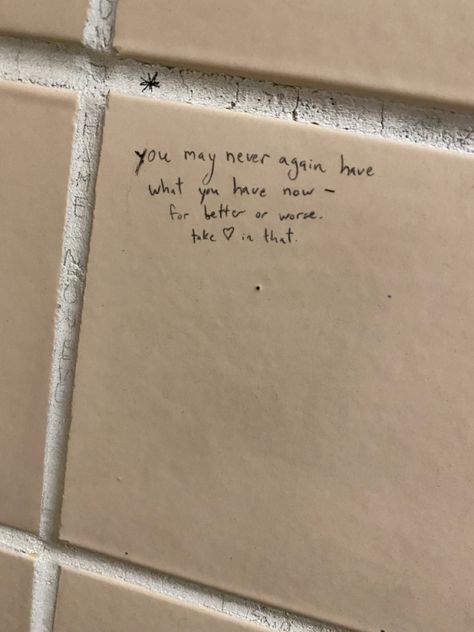 you may never again have
what you have now –
for better or worse.
take ♡ in that.